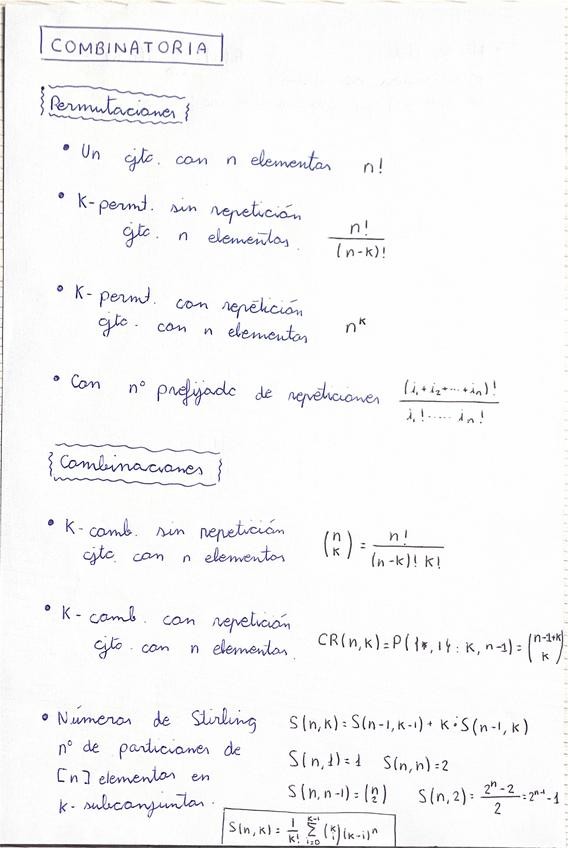 COMBINATORIA
Permutaciones
• Un cjto. con n elementos n!
• K-permt. sin repetición
cjto. n elementos. n!/(n-k)!
• K-permt. con repetición
cjto. con n elementos n^k
• Con nº prefijado de repeticiones (i₁+i₂+...+iₙ)!/(i₁!.....iₙ!)
Combinaciones
• K-comb. sin repetición
cjto. con n elementos (n k) = n!/((n-k)! K!)
• K-comb. con repetición
cjto. con n elementos. CR(n,k)=P({*,1}: K, n-1)=(n-1+K K)
• Números de Stirling S(n,k)=S(n-1,k-1)+K·S(n-1,k)
nº de particiones de S(n,1)=1 S(n,n)=2
[n] elementos en S(n,n-1)=(n 2) S(n,2)=(2^n-2)/2=2^(n-1)-1
k-subconjuntos.
S(n,k)=1/K! ∑_{i=0}^{K-1} (K i)(K-i)^n